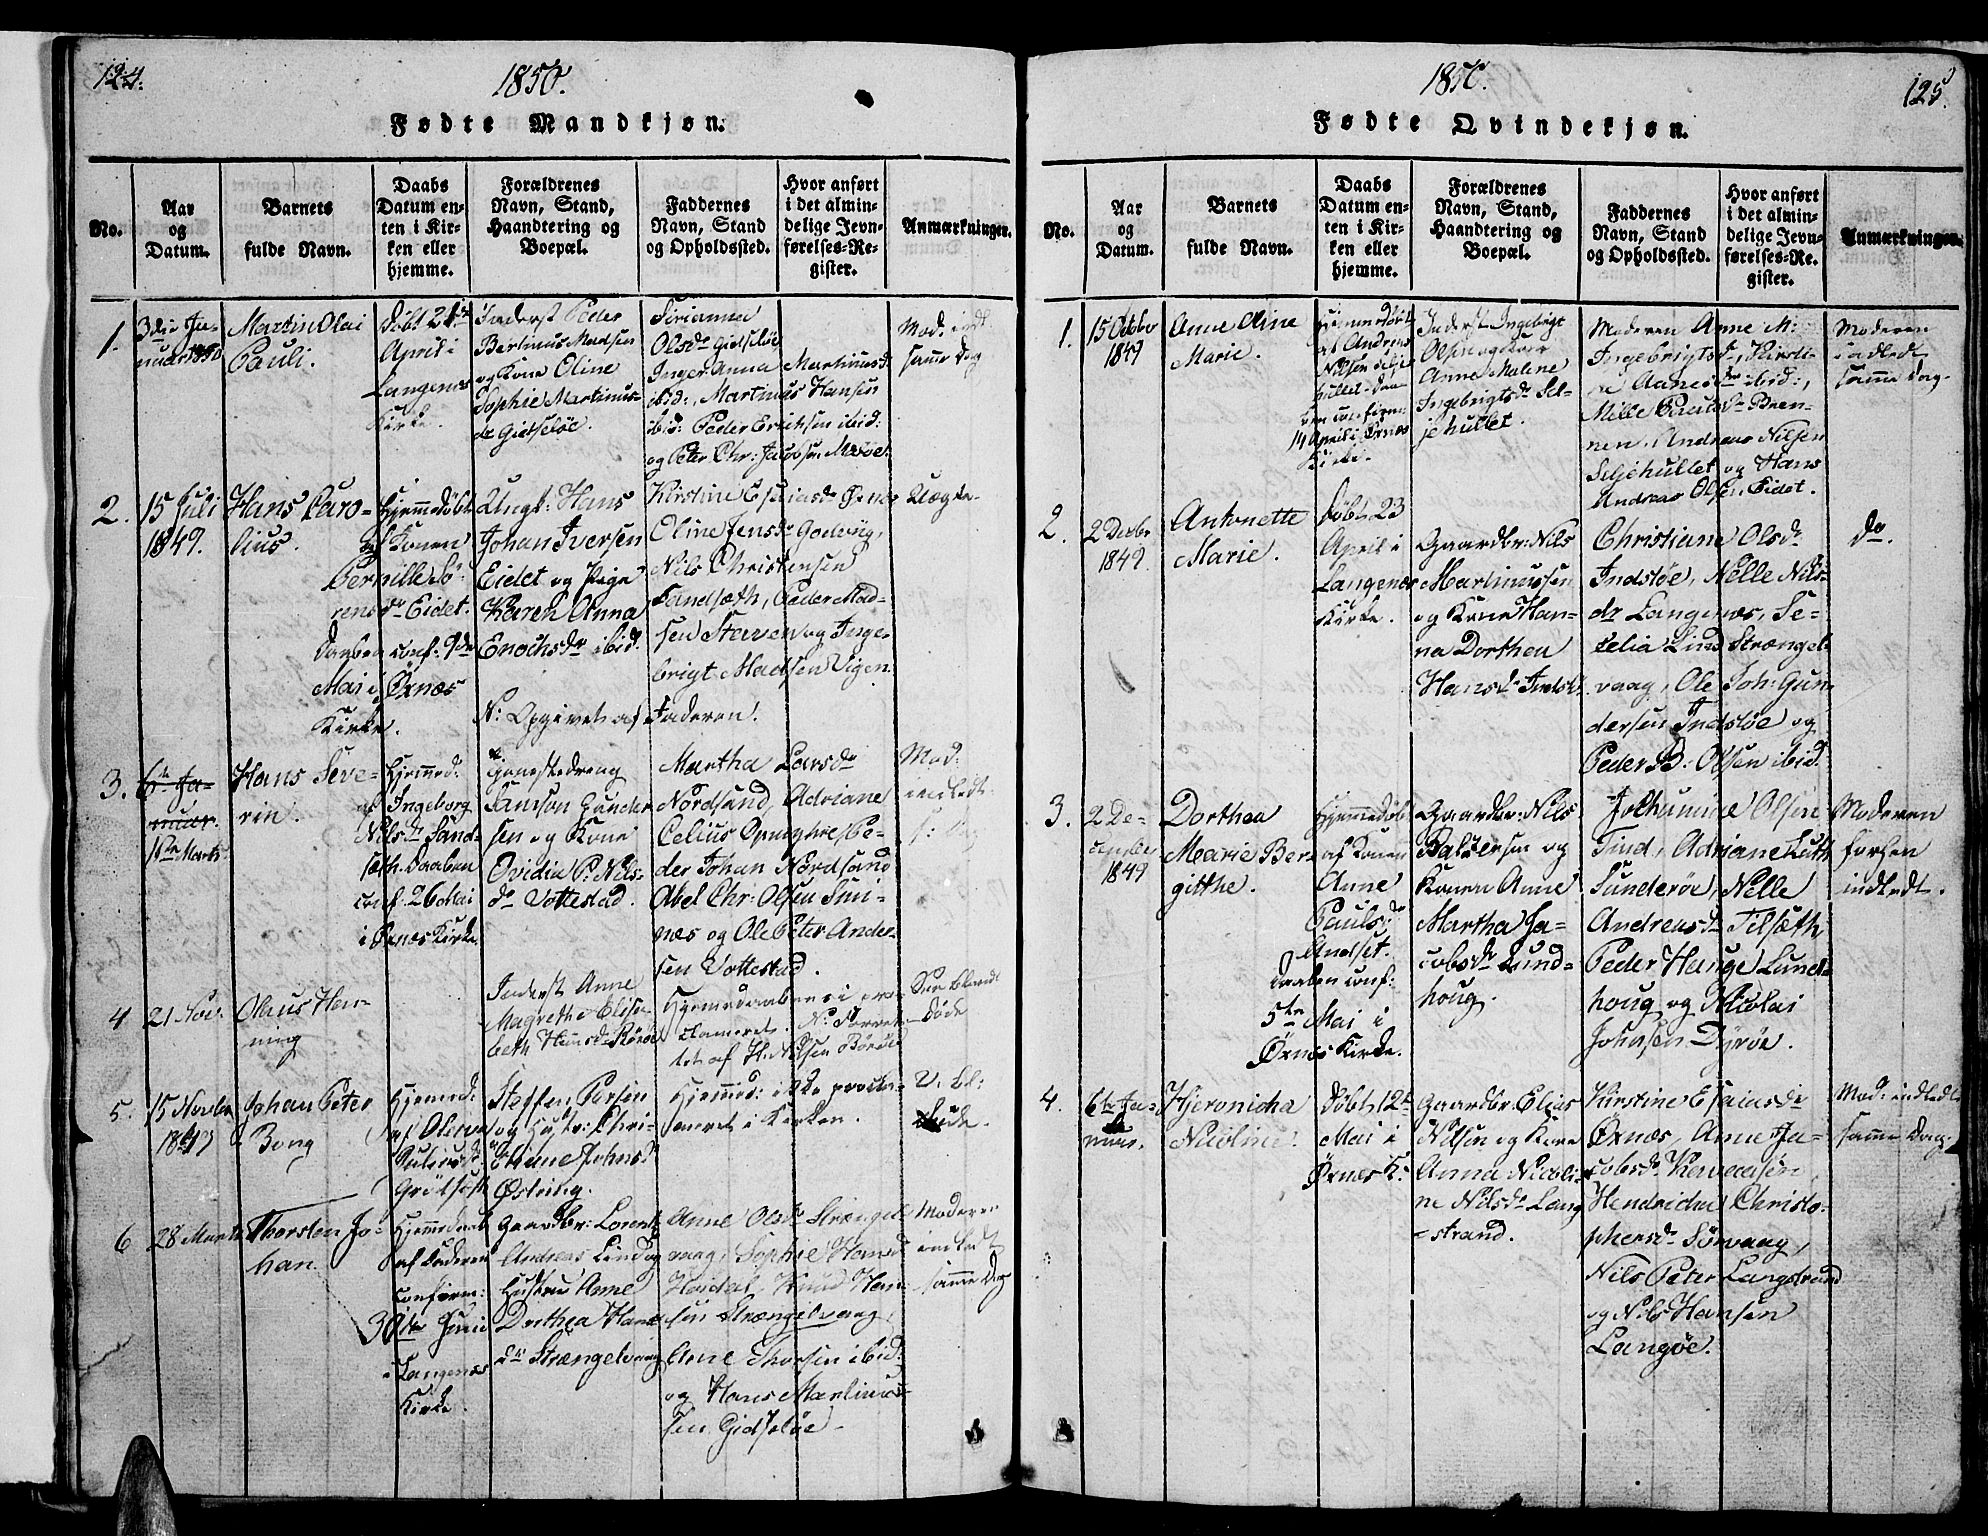 124.
1850.
Fødte Mandkjøn.
No.
Aar
og
Datum.
Barnets
fulde Navn.
Daabs
Datum en-
ten i Kir-
ken eller
hjemme.
Forældrenes
Navn, Stand,
Haandtering og
Boepæl.
Faddernes
Navn, Stand
og Opholdssted.
Hvor anført
i det almin-
delige Jevn-
førelses-Re-
gister.
Anmærkninger.
1.
3die Ja-
nuar 1850
Martin Olai
Pauli.
Døbt 21de
April i
Langenes
Kirke.
Inderst Peder
Bertinus Madsen
og Kone Oline
Sophie Martinus-
dr Gidsløe.
Olsdr Gidsløe
Inger Anna Martinusd:
ibid:, Martinus Hansen
ibid: Peder Erichsen ibid:
og Peter Chr: Jacobsen
Mod: indl
samme Dag
2.
15 Juli
1849.
Hans Caro-
lius.
Hjemmedøbt
af Konen
Pernille Sø-
rensdr Eidet.
Daaben conf: 9de
Mai i Ørnæs
Kirke.
Ungk: Hans
Johan Iversen
Eidet og Pige
Karen Anna
Enochsdr ibid.
N: Opgivet af Faderen!
Kirstine Esaiasdr Ørnæs
Oline Jensdr Godvig,
Nils Christensen
Sandsæth, Peder Mad-
sen Staven og Inge-
brigt Madsen Vigen.
Uægte
3.
6te Ja-
nuar.
11te Marts.
Hans Seve-
rin.
Hjemmed:
af Ingeborg
Nilsdr Sand-
sæth. Daaben
conf. 26 Mai
i Ørnæs Kirke
Samson Gunder
sen og Kone
Ovidia P. Nils-
dr Vottestad.
Martha Larsdr
Nordsand, Adriane
Celius Pe-
der Johan Nordsand
Abel Chr: Olsen Smi-
næs og Ole Peter Ander-
sen Vottestad.
Mod:
indledt
s: Dag
4
21 Nov.
Olaus Han-
ning
Inderst Anne
Magrethe Elisa-
beth Hansdr
Hjemmedaaben ei pro-
clameret. N: Forret-
tet af H. Nilsen Børøe
See blandt
Døde
5.
15 Novbr
1849
Johan Peter
Bong
Hjemmed:
af
Steffen
og Hustr: Chri-
stiane Johnsd
Østring.
Hjemmed: ikke procla-
meret i Kirken.
V. bl:
Døde.
6
28 Marts
Thorsten Jo-
han.
Hjemmedøbt
af Faderen
confirm:
30te Juni
i Langenæs
Kirke.
Gaardbr: Lorents
Andreas Lind og
Hustru Anne
Dorthea Hans
dr Strængelvaag
Anne Olsdr Strængel-
vaag, Sophie Hansd
Høidal, Knud Han-
sen Strængelvaag,
Arne Thorsen ibid:
og Hans Martinus-
sen Gidsløe.
Moderen
indledt
samme Dag
1850.
125.
Fødte Qvindekjøn.
No.
Aar
og
Datum.
Barnets
fulde Navn.
Daabs
Datum en-
ten i Kir-
ken eller
hjemme.
Forældrenes
Navn, Stand,
Haandtering og
Boepæl.
Faddernes
Navn, Stand
og Opholdssted.
Hvor anført
i det almin-
delige Jevn-
førelses-Re-
gister.
Anmærkninger.
1.
15 Octbr
1849
Anne Oline
Marie.
Hjemmedøbt
af Andreas
Nilsen Selje-
hullet. Daa-
ben confirm:
14 April i Ørnæs
Kirke.
Inderst Ingebrigt
Olsen og Kone
Anne Malene
Ingebrigtsdr Sel-
jehullet.
Moderen Anne M:
Ingebrigtsdr,
ibid:,
Brem-
nen. Andreas Nilsen
Seljehullet og Hans
Andreas Olsen Eidet.
Moderen
indledt
samme Dag.
2.
2 Decbr
1849.
Antonette
Marie.
Døbt 23
April i
Langenæs
Kirke.
Gaardbr: Nils
Martinussen
og Kone Han-
na Dorthea
Hansdr Indsl:
Christiane Olsdr
Indsløe, Nelle Nils-
dr Langenæs, Se-
celia Lind Strængel-
vaag, Ole Joh: Gun-
dersen Indsløe og
Peder B. Olsen ibid.
do.
3.
2 De-
cember
1849
Dorthea
Marie Ber-
gitthe.
Hjemmedøbt
af Konen
Anne
Paulsdr
Andset.
Daaben conf:
5te Mai i
Ørnæs Kirke.
Gaardbr: Nils
Baltsersen og
Konen Anne
Martha Ja-
cobsdr Lund-
houg.
Jochumine Olsen
Tind, Adriane Ruth
Sunderøe, Nelle
Andreasdr Tilsæth
Peder Hauge Lund-
houg og Nicolai
Johnsen Dyrøe.
Moderen
forhen
indledt.
4.
6te Ja-
nuar.
Hjeronicha
Nicoline.
Døbt 12te
Mai i
Ørnæs K:
Gaardbr: Elias
Nilsen og Kone
Anna Nicoli-
ne Nilsdr Lang
-strand.
Kirstine Esaiasdr
Ørnæs, Anne Ja-
cobsdr
Hendricha Christo-
phersdr Sørvaag,
Nils Peter Langstrand
og Nils Hansen
Langøe.
Mod: indledt
samme Dag.